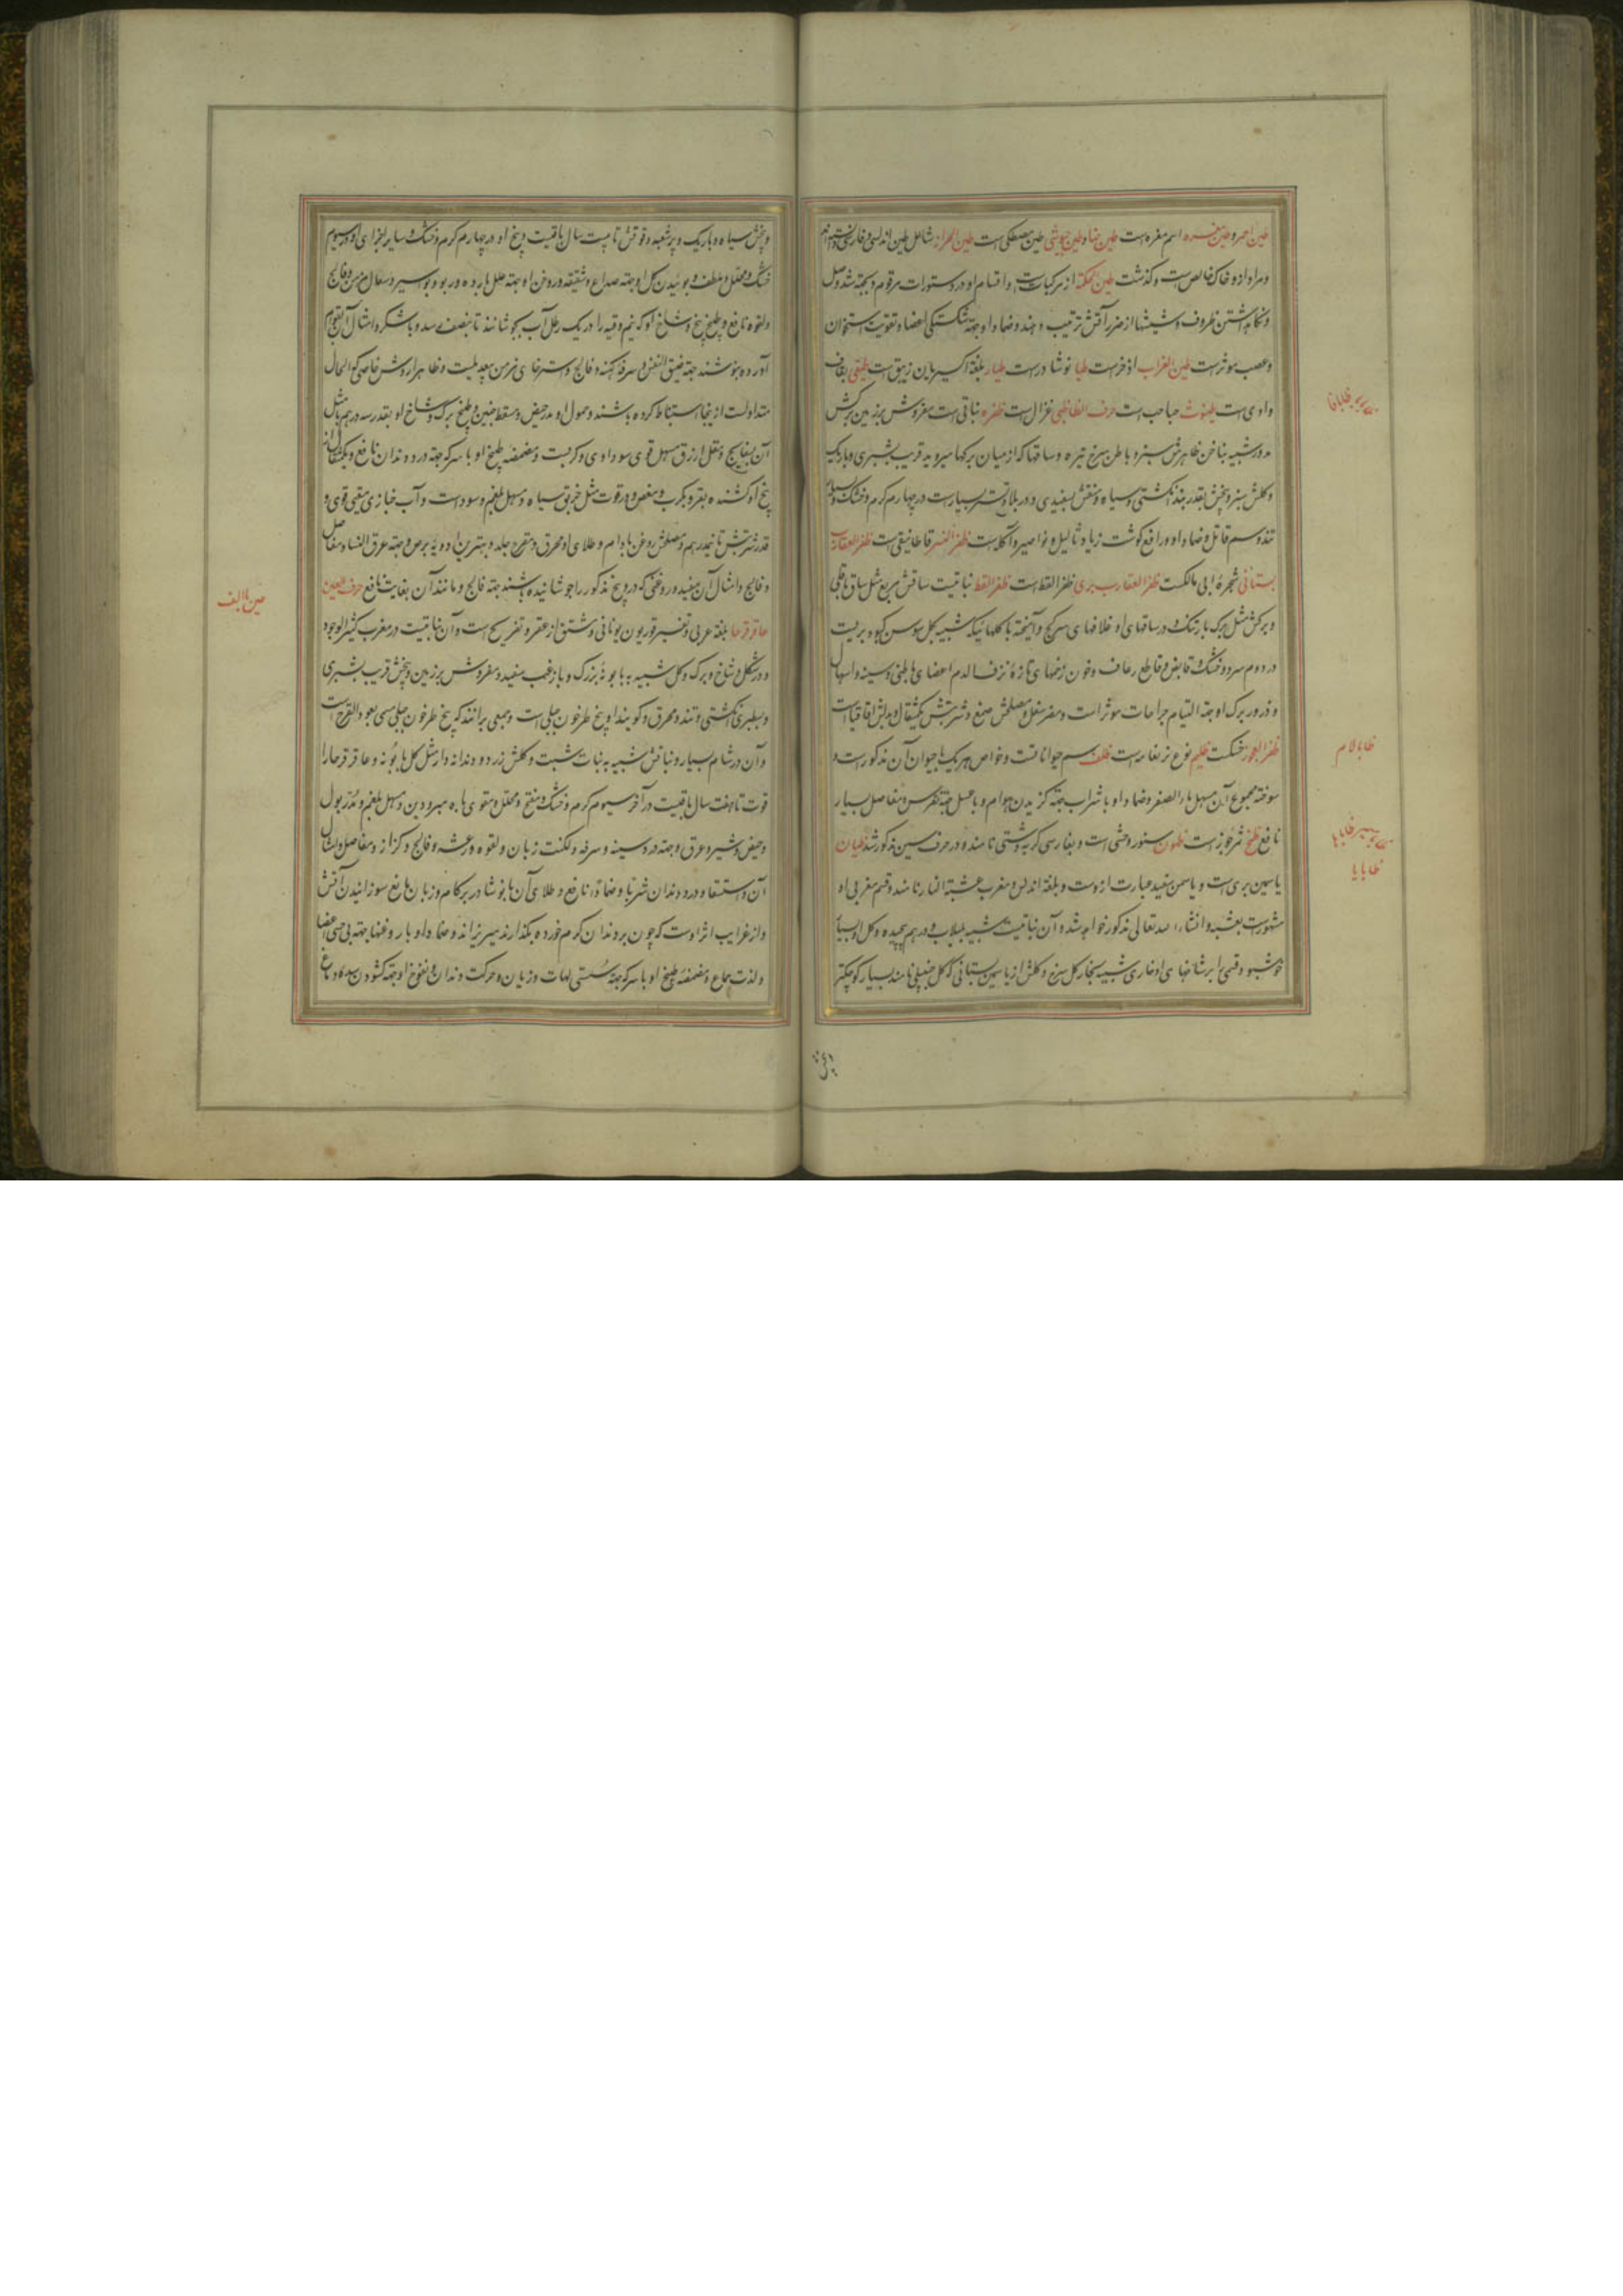 طین احمر و طین مغره اسم مغره است طین است طین شامل طین اندلسی و فارسی
و مراد از و خاک خالص است و گذشت طین الحکمة از مرکبات است و اقسام او در دستورات مرقوم و بجهة
و نگاه داشتن ظروف و شیشها از ضرر آتش ترتیب دهند و ضماد او جهة شکستگی اعضا و تقویت استخوان
و عصب موثر است طین الغراب اذخر است طیا نوشادر است طیار بلغة اکسیریان زیبق است
وادی است است حرف الظا ظبی غزال است ظفره نباتی است مفروش بر زمین برکش
مدور شبیه بناخن ظاهرش سبز و باطن سرخ تیره و ساقها که از میان برکها میروید قریب بشبری و باریک
و کلش سبز و بیخش بقدر بند انگشتی و سیاه و منقش بسفیدی و در بلاد تستر بسیار است در چهارم گرم و خشک و بسیار
تند و سم قاتل و ضماد او رافع گوشت زیاد و ثالیل و نواصیر و آکله است ظفر النسر قاطانیقی است ظفر العقارب
بستانی شجره ابی مالکست ظفر العقارب بری ظفر القط است ظفر القط نباتیست ساقش مربع مثل ساق باقلی
و برکش مثل برک بارتنک و در ساقهای او غلافهای سرکج و آمیخته با کلهائیکه شبیه بکل سوسن کبود بریست
در دوم سرد و خشک و قابض و قاطع رعاف و خون زخمهای تازه و نزف الدم اعضای باطنی و سینه و اسهال
و ذرور برک او جهة التیام جراحات موثر است و مضر سفل و مصلحش صمغ و شربتش یکمثقال و بدلش اقاقیا است
ظفر العجوز خسکست ظلیم نوع نر نعامه است ظلف سم حیوانات و خواص هر یک با حیوان آن مذکور است و
سوخته مجموع آن مسهل ماء الصفر و ضماد او با شراب جهة گزیدن هوام و با عسل جهة نقرس و مفاصل بسیار
نافع ظمخ است سنور وحشی است و بفارسی گربه دشتی نامند و در حرف سین مذکور شد ظیان
یاسمین بری است و یاسمن سفید عبارت ازوست و بلغة اندلس و مغرب عشبة النار نامند و قسم مغربی او
مشهور است بعشبه و انشاء الله تعالی مذکور خواهد شد و آن نباتیست شبیه بلبلاب و در هم پیچیده و کل او بسیار
خوشبو و قسمی را بر شاخهای او خاری شبیه بخار کل سرخ و کلش از یاسمین بستانی که کل چنبیلی نامند بسیار کوچکتر
ظا با لام
ظا با یا
و بیخش سیاه و باریک و پرشعبه و قوتش تا بیست سال باقیست و بیخ او در چهارم گرم و خشک و سایر اجزای او در سیوم
خشک و محلل و ملطف و بوئیدن کل او جهة صداع و شقیقه و روغن او جهة علل بارده و ربو و بواسیر و سعال مزمن و فالج
و لقوه نافع و طبیخ بیخ و شاخ او که نیم وقیه را در یک رطل آب بجوشانند تا بنصف رسد و با شکر و امثال آن بقوام
آورده بنوشند جهة ضیق النفس و سرفه کهنه و فالج و استرخای مزمن بیعدیلست و ظاهرا روش خاصی که الحال
متداولست ازینجا استنباط کرده باشند و حمول او مدر حیض و مسقط جنین و طبخ برک و شاخ او بقدر سه درهم با مثل
آن بسفایج و مقل ازرق مسهل قوی سوداوی و کربست و مضمضه طبیخ او با سرکه جهة درد دندان نافع و یکمثقال از
بیخ او کشنده بقی و بکرب و مغص و در قوت مثل خربق سیاه و مسهل بلغم و سوداست و آب خبازی مقیی قوی و
قدر شربتش تا نیمدرهم و مصلحش روغن بادام و طلای او محرق و مقرح جلد و بهترین ادویه برص و جهة عرق النسا و مفاصل
و فالج و امثال آن مفید و روغنی که درو بیخ مذکور را جوشانیده باشند جهة فالج و مانند آن بغایت نافع حرف العین
عاقرقرحا بلغة عربی و تفسیر قوریون یونانی و مشتق از عقر و تقریح است و آن نباتیست در مغرب کثیر الوجود
و در شکل و شاخ و برک و کل شبیه به بابونه بزرک و با زغب سفید و مفروش بر زمین و بیخش قریب بشبری
و بسطبری انگشتی و تند و محرق و کویند او بیخ طرخون جبلی است و جمعی برانند که بیخ طرخون جبلی مسمی بعود القرح است
و آن در شام بسیار و نباتش شبیه به نبات شبت و کلش زرد و دندانه دار مثل کل بابونه و عاقرقرحا را
قوت تا هفت سال باقیست در آخر سیوم گرم و خشک و مفتح و محلل و مقوی باه مبرودین و مسهل بلغم و مدر بول
و حیض و شیر و عرق و جهة درد سینه و سرفه و لکنت زبان و لقوه و رعشه و فالج و کزاز و مفاصل و امثال
آن و استسقا و درد دندان شربا و ضمادا نافع و طلای آن با نوشادر بر کام و زبان مانع سوزانیدن آتش
و از غرایب اثر اوست که چون بر دندان کرم خورده بگذارند میریزاند و ضماد او با روغنها جهة بی حسی اعضا
و لذت جماع و مضمضه طبیخ او با سرکه جهة سستی لهات و زبان و حرکت دندان و نفوخ او جهة کشودن سده دماغ
عین با الف